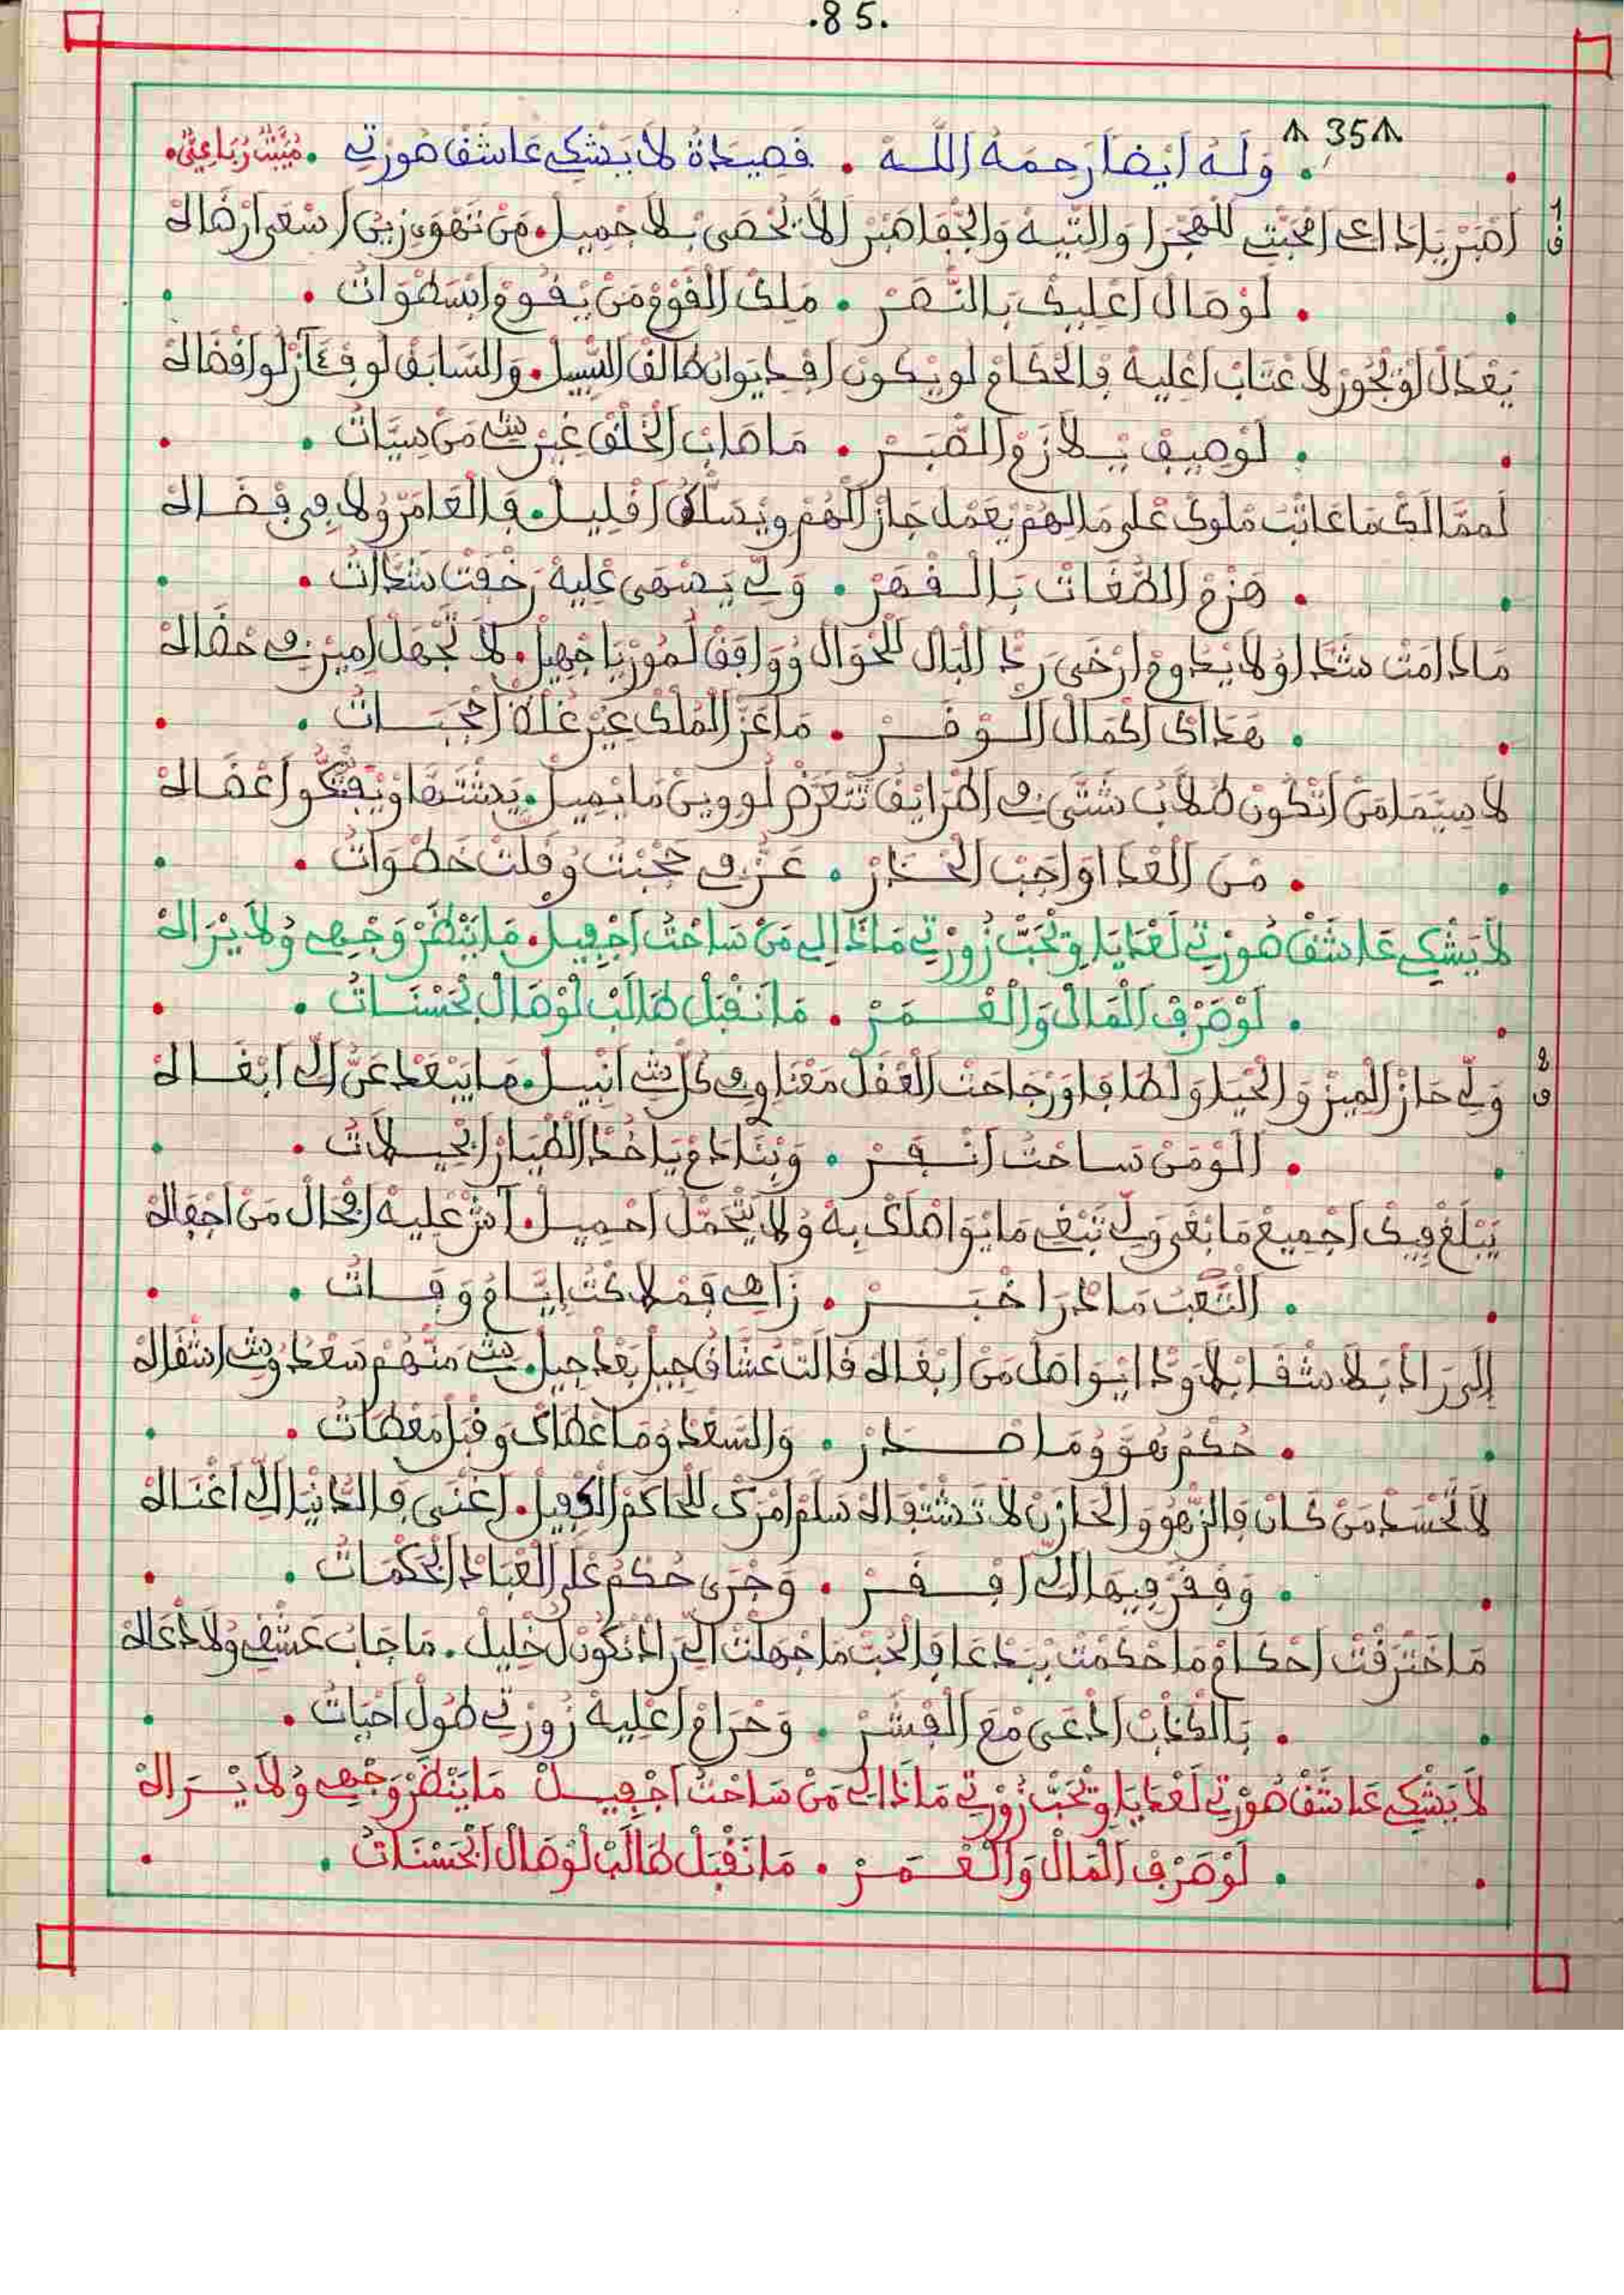 .85.
35
. وَلَهُ أيضا رحمه الله . فصيدة لا يشكي عاشف صورتي . مبيت رباعي.
اصبر يا داعي المحبت للهجر والتيه والجفا صبر الا يحصى بلا جميل . من تهوى زين اسعى ارضاله
. لو صال اعليك بالنصر . ملك الغرو من يفوم ابسطوات .
يعدال او يجور لا عتاب اعليه في الحكام لو يكون افديوان طالف السبيل . والسابف لو
. لو صيف بلازم الصبر . ما صاب الخلف غير شي من سيات .
لممالك ما عاتب ملوك على مالهم يعمل جاز الهم ويسلك افليل . في العامر ولا في فضاله
. هزم الطغات بالفهر . ولي يصهى عليه رخفت شدات .
مادامت شدا ولا يدوم ارخى رد البال للحوال ووافف لمور يا جهيل . لا تجهل امير في حفاله
. هداك اكمال الوفر . ما عز الملك غير غلفة احجبات .
لا سيما من اتكون طلاب شتى في اطرايف تتعرض لو وين ما يميل . يدشتها ويفتكو اعضاله
. من العدا واجب الحدر . عز في حجبت وفلت خطوات .
لا يشكي عاشف صورتي لغدايا وتحب زورتي ماذا الي من ساحت اجفيل . ما ينظر وجهي ولا يراله
. لو صرف المال والعمر . ما نفبل طالب لوصال بحسنات .
ولي حاز الميز والحيا ولطافا ورجاحت العفل معنا وفي كل شي انبيل . ما يبعد عن الي ابغاله
. اللوم من ساحت انفر . وبنادم ياخد الطيار ابحيلات .
يبلغ فيك اجميع ما بغى ولي تبغي ما يواصلك به ولا يتحمل احميل . اش عليه افحال من اجفاله
. التعب ما درا خبر . زاهي فملاكت ايام وفات .
الى راد بلا شفا بلا ودا ايواصل من ابغاله فالت عشاف جيل بعد جيل . شي منهم سعد وشي اشفاله
. حكم هو وما صدر . والسعد وما عطاك وفبل معطات .
لا تحسد من كان في الزهو والحازن لا تشتفاله سلم امرك للحاكم الكفيل . اغنى في الدنيا الي اغناله
. وففر فيها الي اففر . وجرى حكم على العباد ابحكمات .
ما اخترفت احكام ما حكمت ببدعا في الحب ما جهلت الى راد نكون ل خليل . ما جاب عشفي ولا دعاله
. بالكذب ادعى مع الفشر . وحرام اعليه زورتي طول احيات .
لا يشكي عاشف صورتي لغدايا وتحب زورتي ماذا الي من ساحت اجفيل ما ينظر وجهي ولا يراله
. لو صرف المال والعمر . ما نفبل طالب لوصال ابحسنات .